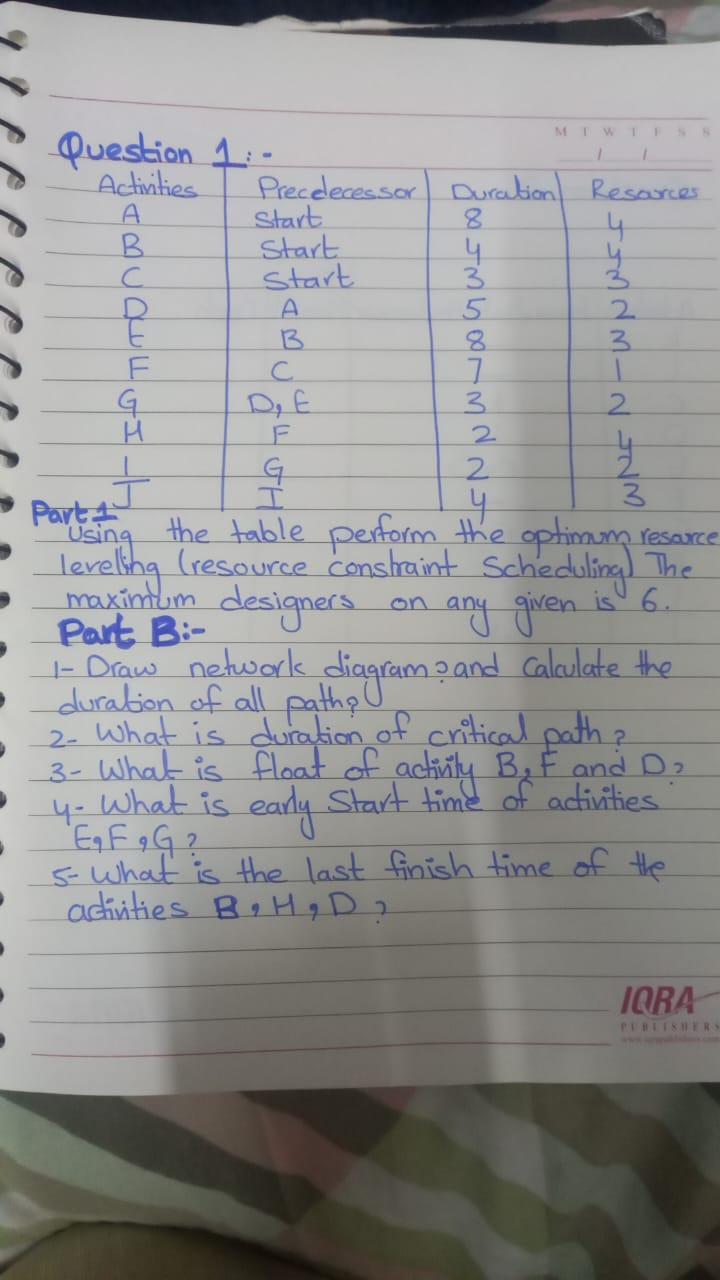 M T W T F S S
Question 1:-
Activities Precdecessor Duration Resources
A Start 8 4
B Start 4 4
C Start 3 3
D A 5 2
E B 8 3
F C 7 1
G D, E 3 2
H F 2 4
I G 2 2
J I 4 3
Part 1
Using the table perform the optimum resource
leveling (resource constraint Scheduling) The
maximum designers on any given is 6.
Part B:-
1- Draw network diagram? and Calculate the
duration of all path?
2- What is duration of critical path?
3- What is float of activity B, F and D?
4- What is early Start time of activities
E, F, G?
5- What is the last finish time of the
activities B, H, D?
IQRA
PUBLISHERS